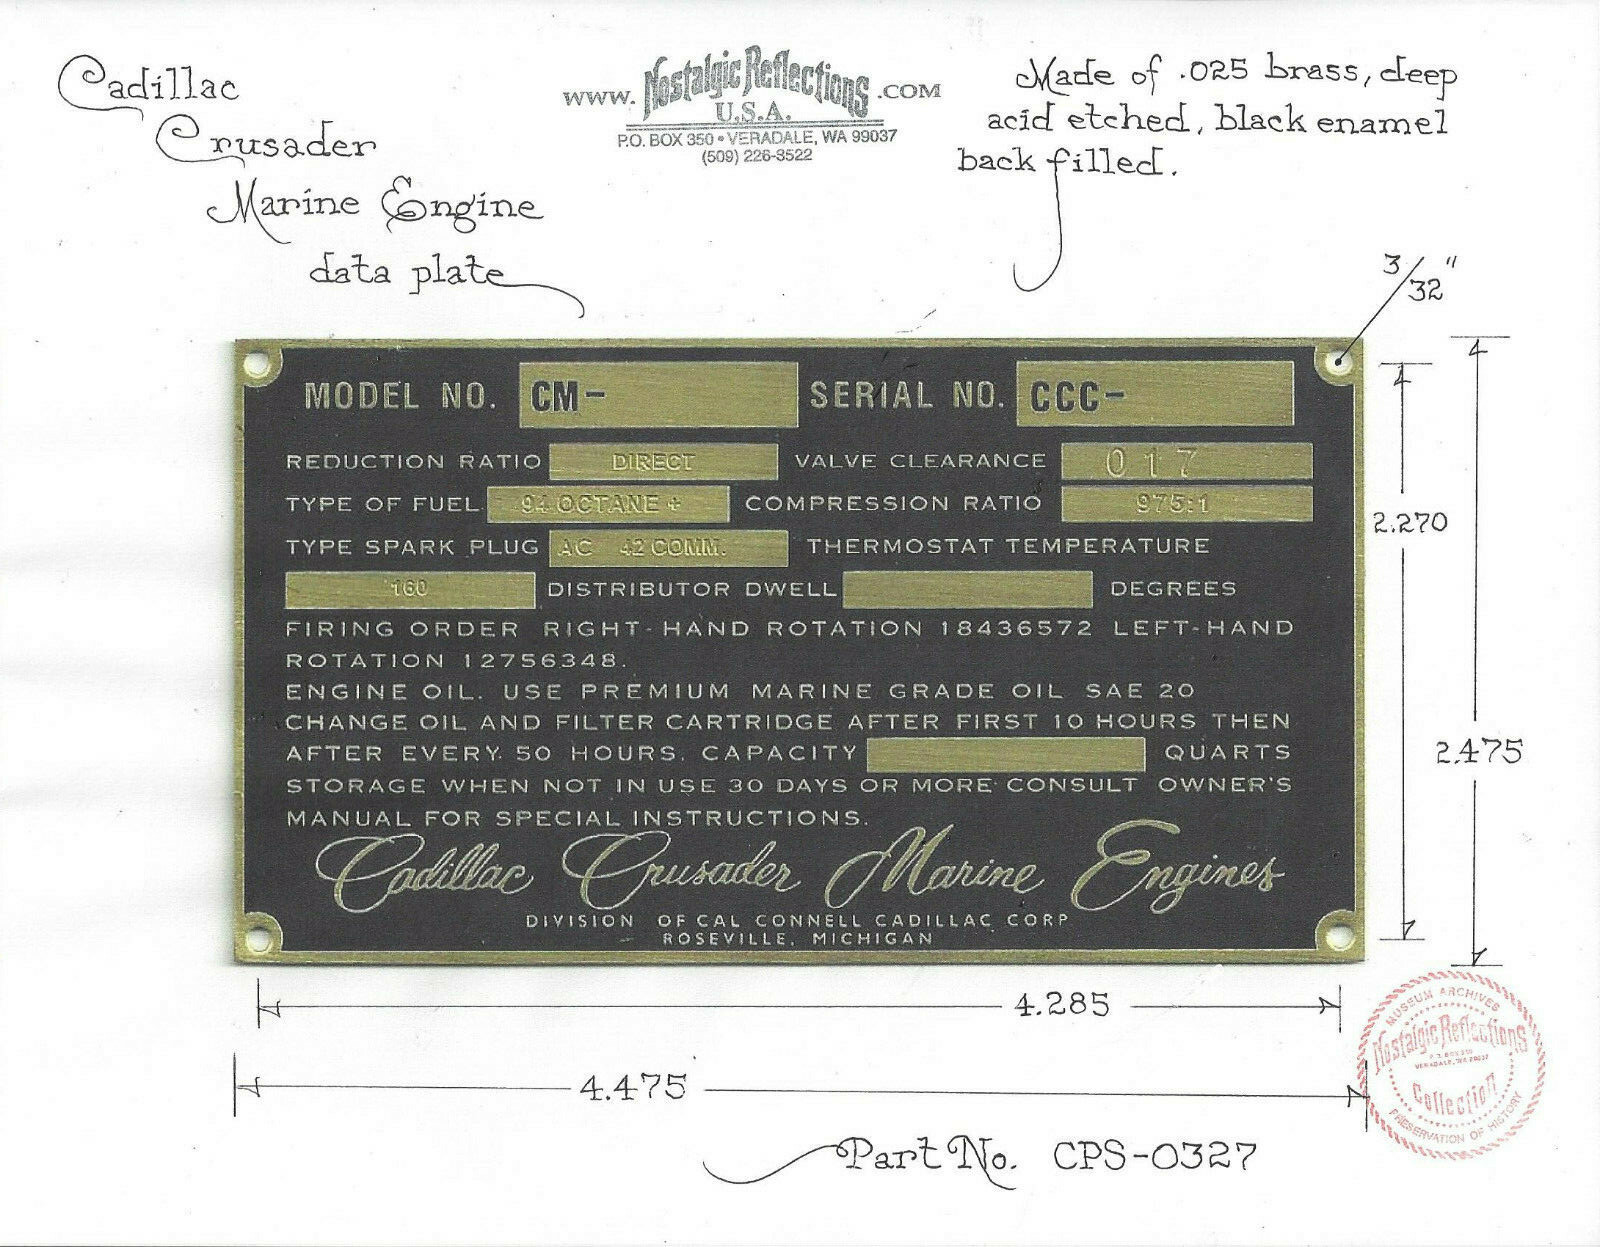 Cadillac
Crusader
Marine Engine
data plate
www. Nostalgic Reflections .COM
U.S.A.
P.O. BOX 350 • VERADALE, WA 99037
(509) 226-3522
Made of .025 brass, deep
acid etched, black enamel
back filled.
3/32"
MODEL NO. CM- SERIAL NO. CCC-
REDUCTION RATIO DIRECT VALVE CLEARANCE 017
TYPE OF FUEL 94 OCTANE + COMPRESSION RATIO 975:1
TYPE SPARK PLUG AC 42 COMM. THERMOSTAT TEMPERATURE
160 DISTRIBUTOR DWELL DEGREES
FIRING ORDER RIGHT-HAND ROTATION 18436572 LEFT-HAND
ROTATION 12756348.
ENGINE OIL. USE PREMIUM MARINE GRADE OIL SAE 20
CHANGE OIL AND FILTER CARTRIDGE AFTER FIRST 10 HOURS THEN
AFTER EVERY 50 HOURS. CAPACITY QUARTS
STORAGE WHEN NOT IN USE 30 DAYS OR MORE CONSULT OWNER'S
MANUAL FOR SPECIAL INSTRUCTIONS.
Cadillac Crusader Marine Engines
DIVISION OF CAL CONNELL CADILLAC CORP
ROSEVILLE, MICHIGAN
2.270
2.475
4.285
4.475
MUSEUM ARCHIVES
Nostalgic Reflections
P.O. BOX 350
VERADALE, WA 99037
Collection
PRESERVATION OF HISTORY
Part No. CPS-0327